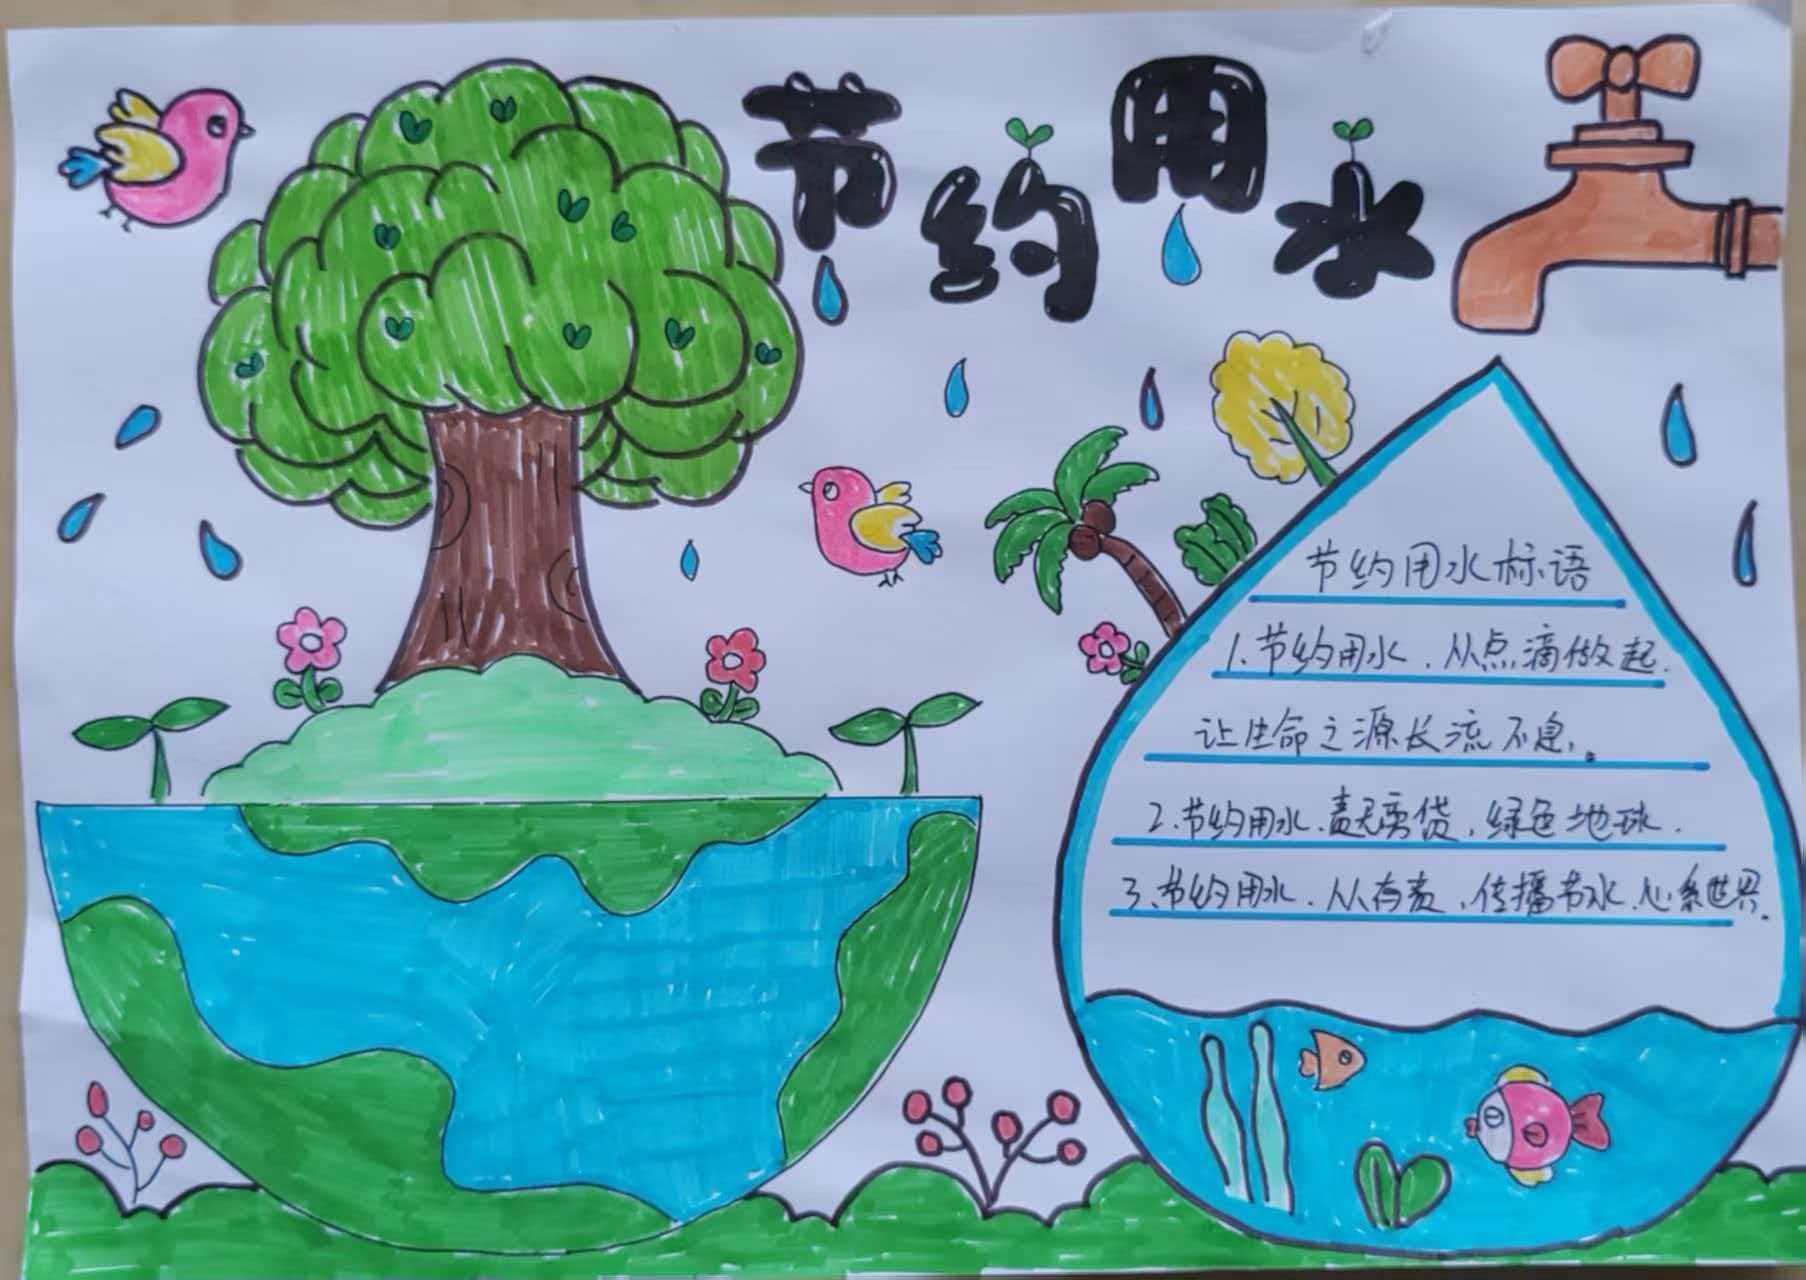 节约用水
节约用水标语
1.节约用水,从点滴做起.
让生命之源长流不息。
2.节约用水.责无旁贷,绿色地球.
3.节约用水.从有责,传播节水.心系世界.